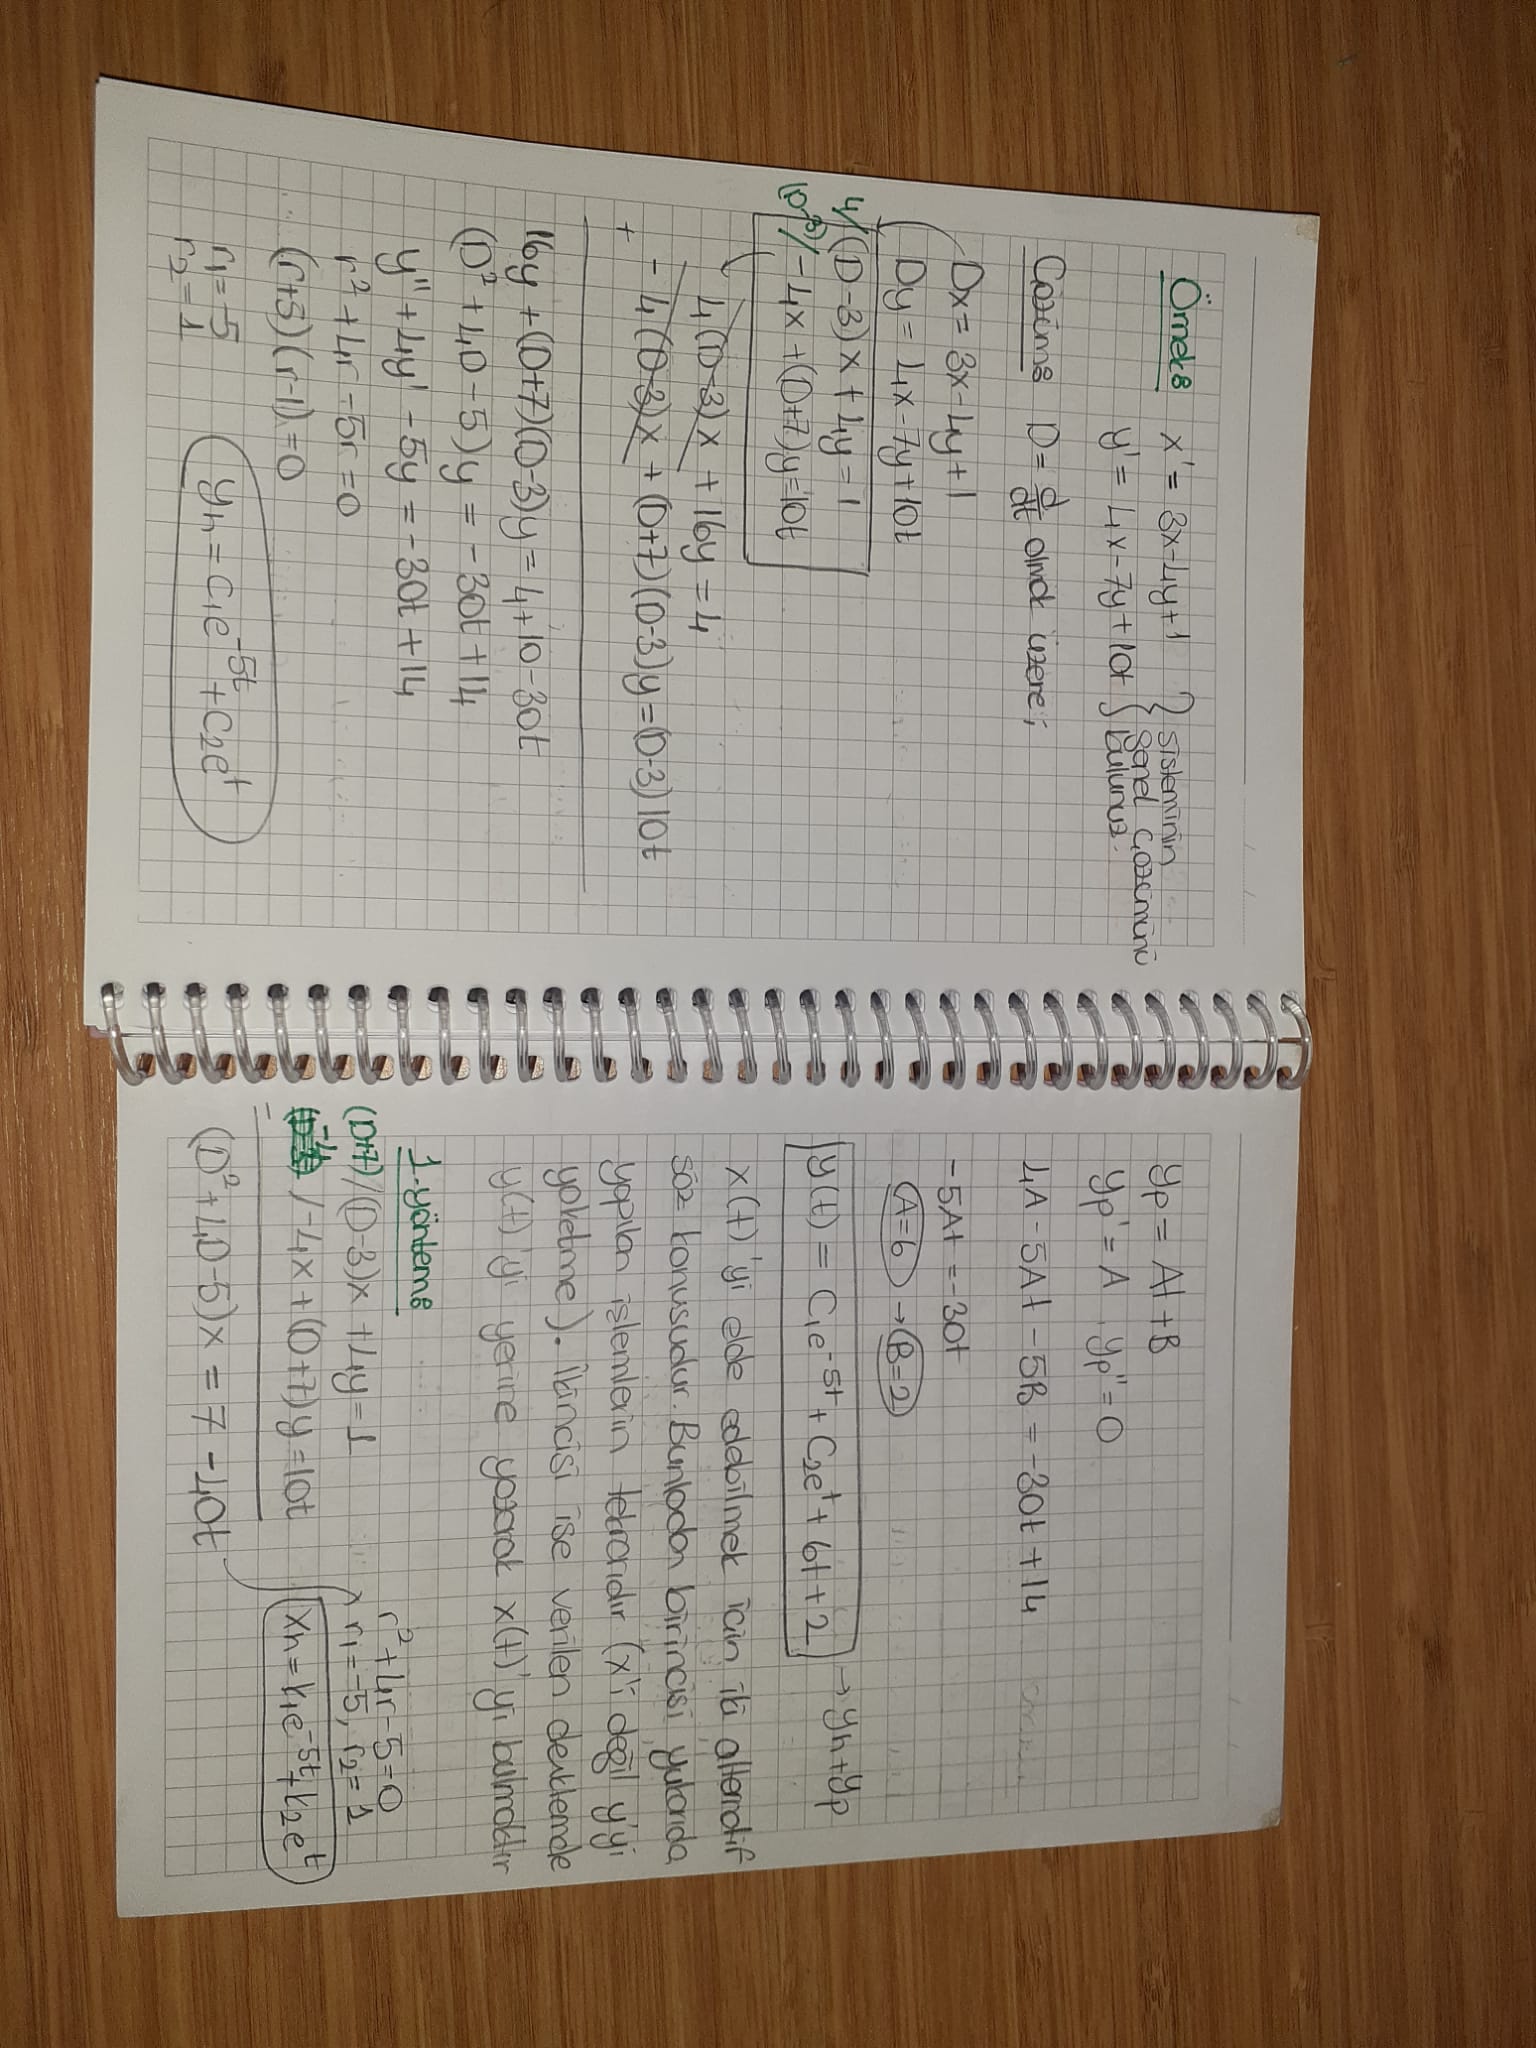 Örnek: x' = 3x-4y+1 } sisteminin
genel çözümünü
y' = 4x-7y+10t } bulunuz.
Çözüm: D = d/dt olmak üzere;
Dx = 3x-4y+1
Dy = 4x-7y+10t
4/ (D-3)x + 4y = 1
(D-3)/ -4x + (D+7)y = 10t
4(D-3)x + 16y = 4
-4(D-3)x + (D+7)(D-3)y = (D-3)10t
+
16y + (D+7)(D-3)y = 4+10-30t
(D² + 4D - 5)y = -30t + 14
y'' + 4y' - 5y = -30t + 14
r² + 4r - 5r = 0
(r+5)(r-1) = 0
r₁ = -5
r₂ = 1
yh = c₁e^-5t + c₂e^t
yp = At + B
yp' = A , yp'' = 0
4A - 5At - 5B = -30t + 14
-5At = -30t
A=6 → B=2
y(t) = C₁e^-5t + C₂e^t + 6t + 2 → yh + yp
x(t)'yi elde edebilmek için iki alternatif
söz konusudur. Bunladan birincisi yukarıda
yapılan işlemlerin tekrarıdır (x'i değil y'yi
yoketme). İkincisi ise verilen denklemde
y(t)'yi yerine yazarak x(t)'yi bulmaktır
1.yöntem:
(D+7)/ (D-3)x + 4y = 1
-4 / -4x + (D+7)y = 10t
-
(D² + 4D - 5)x = 7 - 40t
r² + 4r - 5 = 0
r₁ = -5, r₂ = 1
xh = k₁e^-5t + k₂e^t